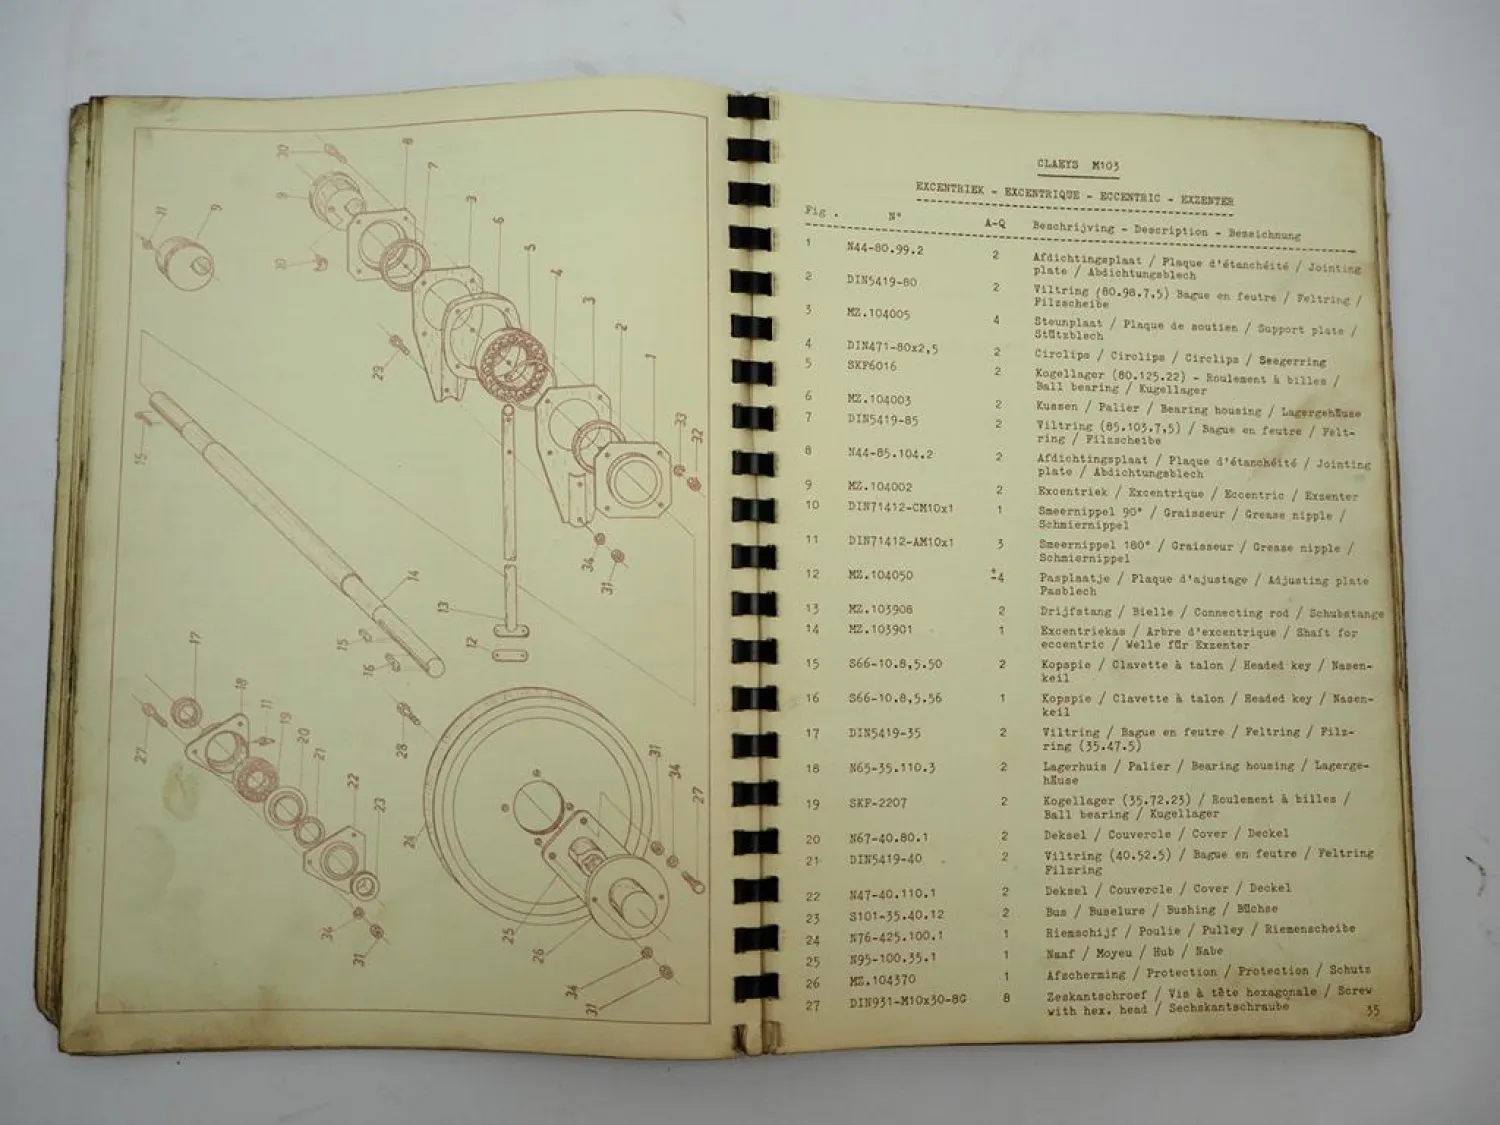 30
8
7
3
6
5
4
3
2
1
33
32
9
11
9
10
29
15
14
13
12
34
31
15
16
17
18
11
19
20
21
22
23
27
28
24
31
34
27
25
26
34
31
34
31
CLAEYS M103
EXCENTRIEK - EXCENTRIQUE - ECCENTRIC - EXZENTER
Fig. N° A-Q Beschrijving - Description - Bezeichnung
1 N44-80.99.2 2 Afdichtingsplaat / Plaque d'étanchéité / Jointing
plate / Abdichtungsblech
2 DIN5419-80 2 Viltring (80.98.7,5) Bague en feutre / Feltring /
Filzscheibe
3 MZ.104005 4 Steunplaat / Plaque de soutien / Support plate /
Stützblech
4 DIN471-80x2,5 2 Circlips / Circlips / Circlips / Seegerring
5 SKF6016 2 Kogellager (80.125.22) - Roulement à billes /
Ball bearing / Kugellager
6 MZ.104003 2 Kussen / Palier / Bearing housing / Lagergehäuse
7 DIN5419-85 2 Viltring (85.103.7,5) / Bague en feutre / Felt-
ring / Filzscheibe
8 N44-85.104.2 2 Afdichtingsplaat / Plaque d'étanchéité / Jointing
plate / Abdichtungsblech
9 MZ.104002 2 Excentriek / Excentrique / Eccentric / Exsenter
10 DIN71412-CM10x1 1 Smeernippel 90° / Graisseur / Grease nipple /
Schmiernippel
11 DIN71412-AM10x1 3 Smeernippel 180° / Graisseur / Grease nipple /
Schmiernippel
12 MZ.104050 ±4 Pasplaatje / Plaque d'ajustage / Adjusting plate
Pasblech
13 MZ.103908 2 Drijfstang / Bielle / Connecting rod / Schubstange
14 MZ.103901 1 Excentriekas / Arbre d'excentrique / Shaft for
eccentric / Welle für Exzenter
15 S66-10.8,5.50 2 Kopspie / Clavette à talon / Headed key / Nasen-
keil
16 S66-10.8,5.56 1 Kopspie / Clavette à talon / Headed key / Nasen-
keil
17 DIN5419-35 2 Viltring / Bague en feutre / Feltring / Filz-
ring (35.47.5)
18 N65-35.110.3 2 Lagerhuis / Palier / Bearing housing / Lagerge-
häuse
19 SKF-2207 2 Kogellager (35.72.23) / Roulement à billes /
Ball bearing / Kugellager
20 N67-40.80.1 2 Deksel / Couvercle / Cover / Deckel
21 DIN5419-40 2 Viltring (40.52.5) / Bague en feutre / Feltring
Filzring
22 N47-40.110.1 2 Deksel / Couvercle / Cover / Deckel
23 S101-35.40.12 2 Bus / Buselure / Bushing / Büchse
24 N76-425.100.1 1 Riemschijf / Poulie / Pulley / Riemenscheibe
25 N95-100.35.1 1 Naaf / Moyeu / Hub / Nabe
26 MZ.104370 1 Afscherming / Protection / Protection / Schutz
27 DIN931-M10x30-8G 8 Zeskantschroef / Vis à tête hexagonale / Screw
with hex. head / Sechskantschraube
35